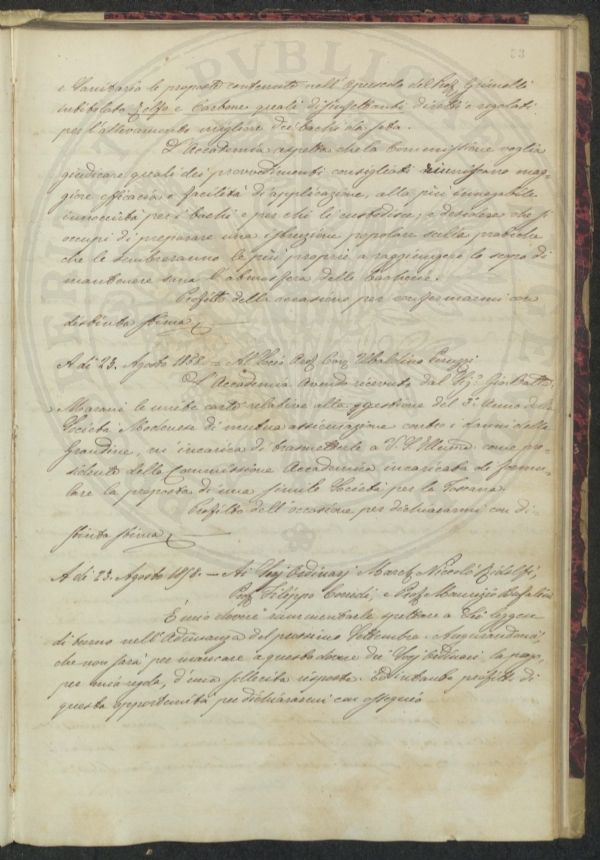 53
e Sanitaria le proposte contenute nell'opuscolo del Prof. Grimelli
intitolato Zolfo e Carbone quali disinfettanti diretti e regolati
per l'allevamento migliore dei bachi da seta.
L'Accademia aspetta che la Commissione voglia
giudicare quale dei provvedimenti consigliati riuniscano mag-
giore efficacia e facilità d'applicazione, alla più innegabile
innocuità per i bachi e per chi li custodisce, e desidera che si
occupi di preparare una istruzione popolare sulle pratiche
che le sembreranno le più proprie a raggiungere lo scopo di
mantenere sana l'atmosfera delle bacherie.
Profitto della occasione per confermarmi con
distinta stima
A dì 23. Agosto 1858. – Al Socio Ord. Cav. Ubaldino Peruzzi
L'Accademia avendo ricevuto dal Sig.
Marani le unite carte relative alla gestione del 3.° Anno della
Società Modenese di mutua assicurazione contro i danni della
Grandine, mi incarica di trasmetterle a V. S. Illustma come pre-
sidente della Commissione Accademica incaricata di formu-
lare la proposta di una simile Società per la Toscana.
Profitto dell'occasione per dichiararmi con di-
stinta stima
A dì 23. Agosto 1858. – Ai Sigg. Ordinarj March. Niccolò Ridolfi,
Prof. Filippo Corridi, e Prof. Maurizio Bufalini
È mio dovere rammentarle spettare a Lei leggere
di turno nell'Adunanza del prossimo Settembre. Augurandomi
che non sarà per mancare a questo dovere dei Sigg. Ordinari la prego
per mia regola, d'una sollecita risposta. Ed intanto profitto di
questa opportunità per dichiararmi con ossequio